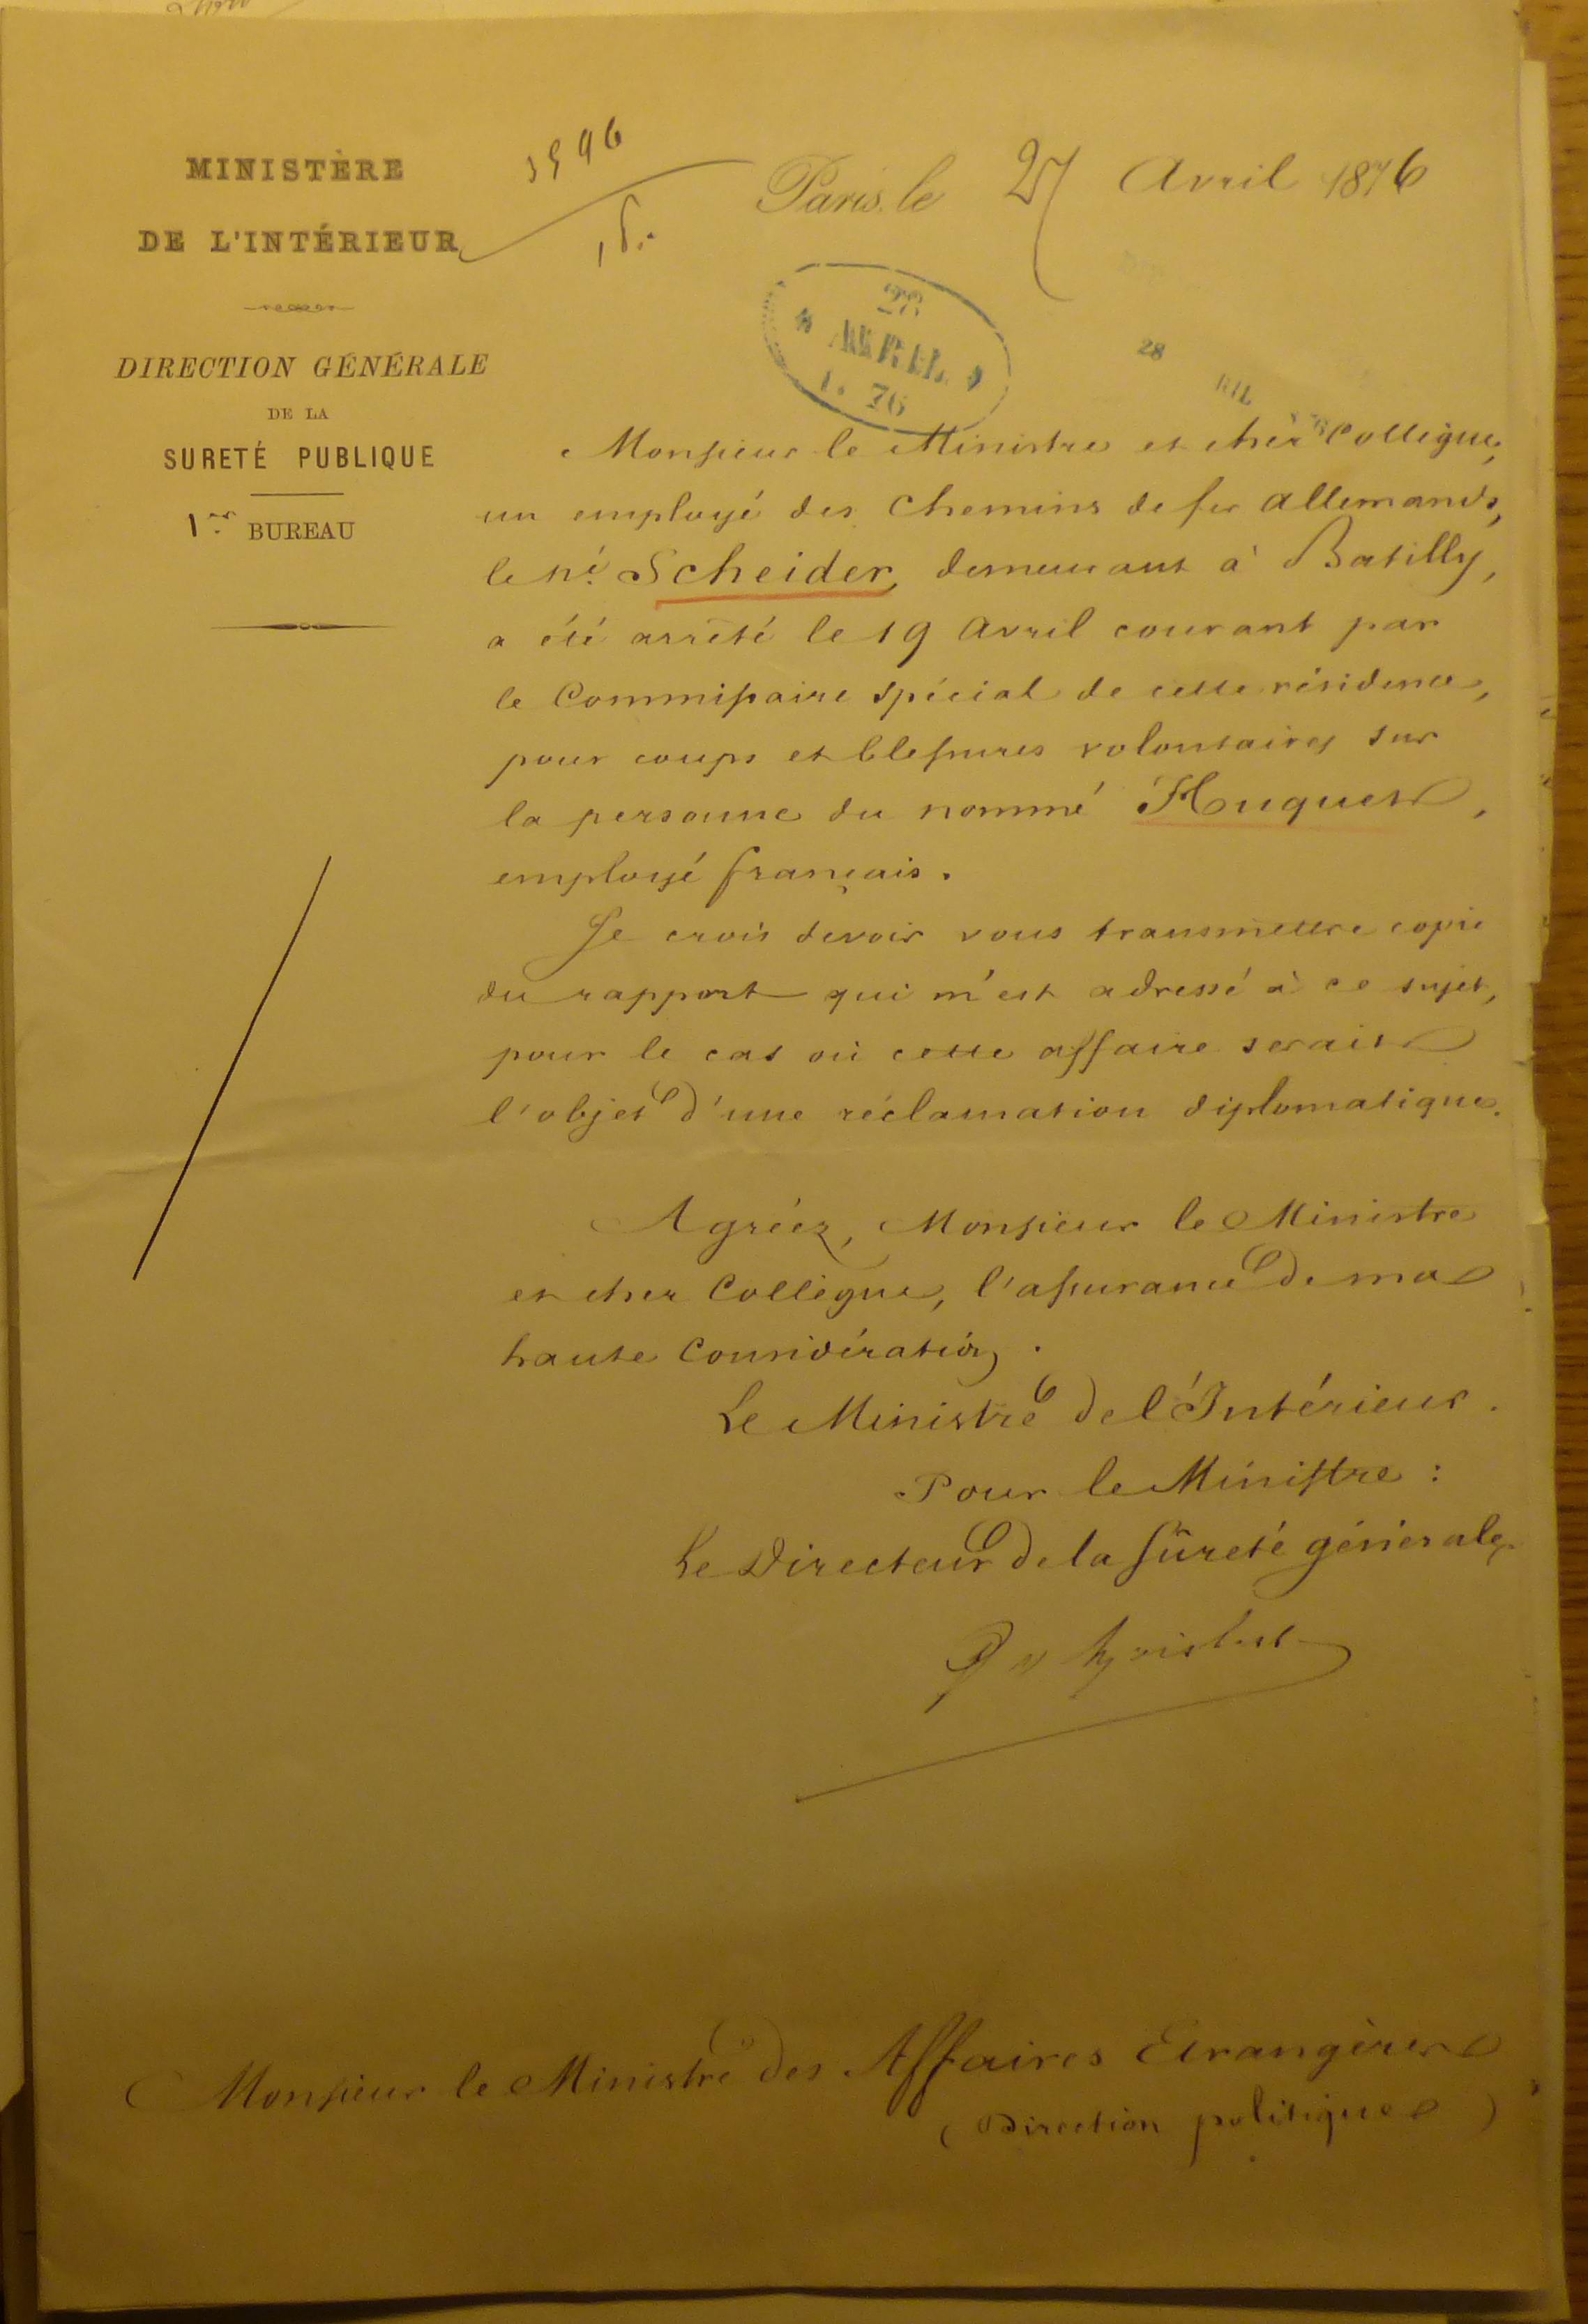 3996
MINISTÈRE
DE L'INTÉRIEUR
DIRECTION GÉNÉRALE
DE LA
SURETÉ PUBLIQUE
1er BUREAU
Paris, le 27 Avril 1876
28
AVRIL
76
28
RIL
Monsieur le Ministre et cher Collègue,
un employé des Chemins de fer allemands,
le né. Scheider, demeurant à Batilly,
a été arrêté le 19 avril courant par
le Commissaire spécial de cette résidence,
pour coups et blessures volontaires sur
la personne du nommé Huguet,
employé français.
Je crois devoir vous transmettre copie
du rapport qui m'est adressé à ce sujet,
pour le cas où cette affaire serait
l'objet d'une réclamation diplomatique.
Agréez, Monsieur le Ministre
et cher Collègue, l'assurance de ma
haute Considération.
Le Ministre de l'Intérieur.
Pour le Ministre :
Le Directeur de la Sûreté générale,
Monsieur le Ministre des Affaires Etrangères
(Direction politique)